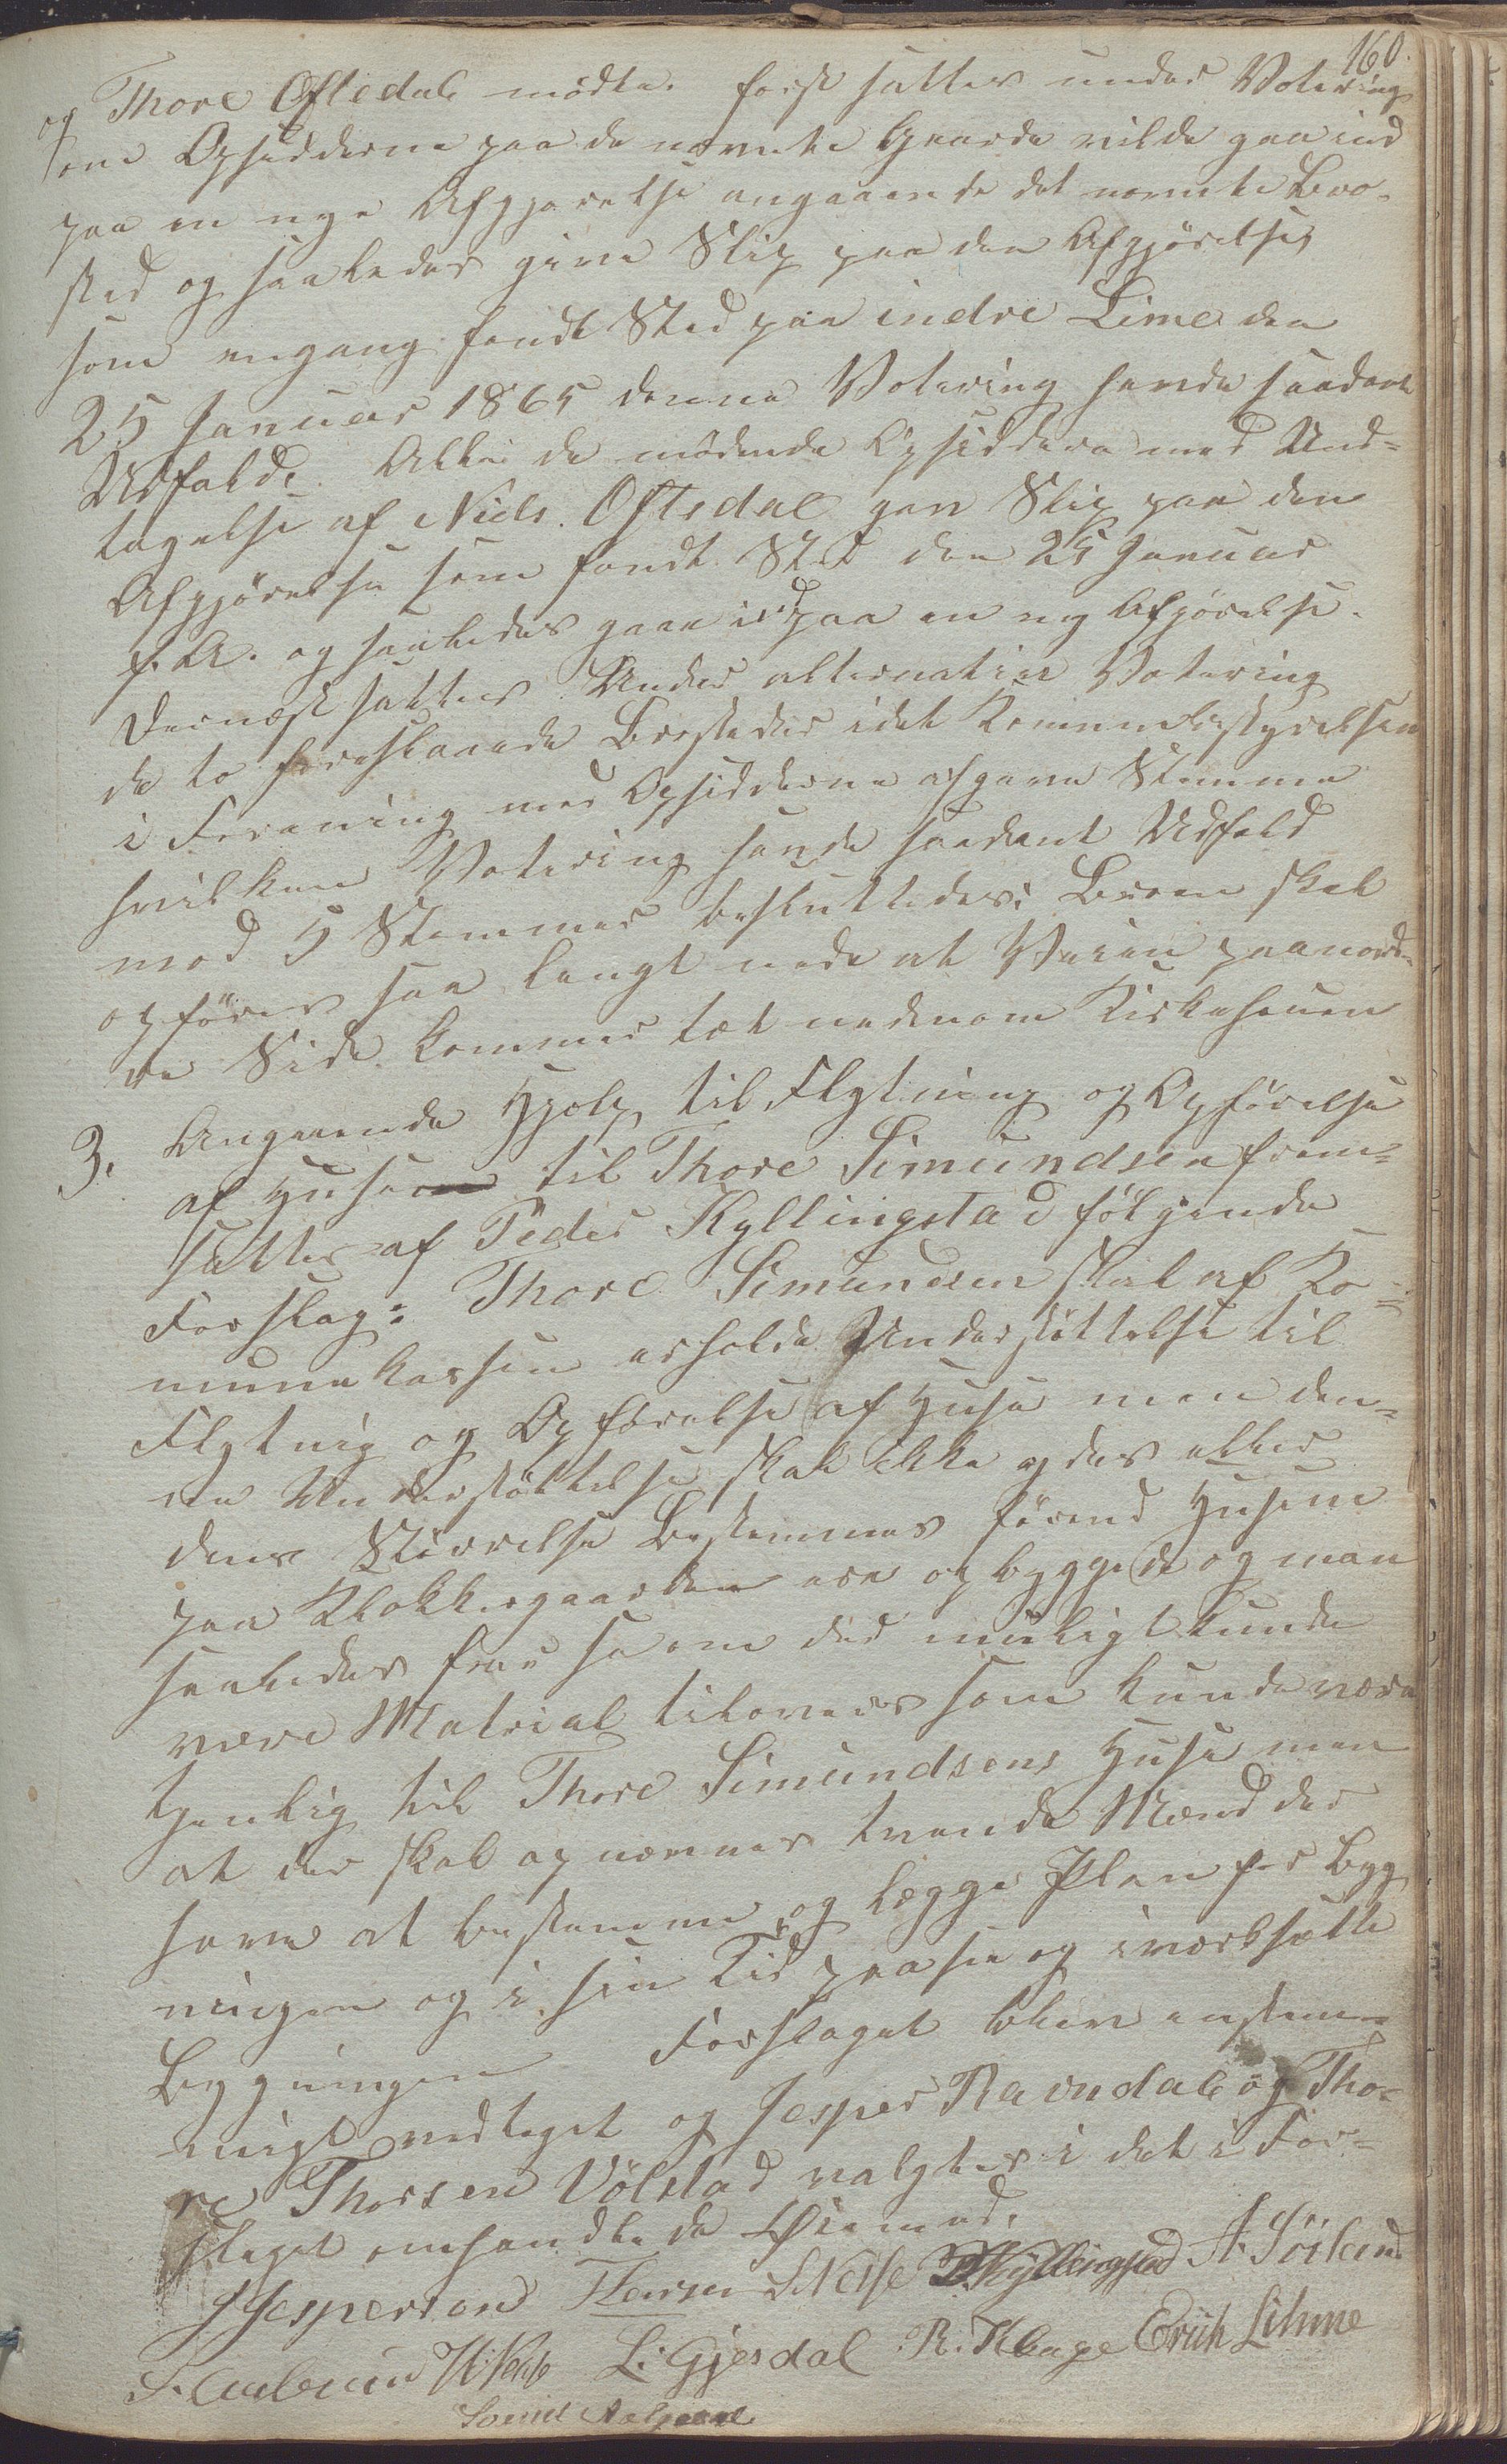 160.
og Thore Oftedal mødte. først sattes under Votering
om Opsidderne paa de nævnte Gaarde vilde gaa ind
paa en nye Afgjørelse angaaende det nævnte Bro-
sted og saaledes give Slip paa den Afgjørelse,
som engang fandt Sted paa indre Lime den
25 Januar 1865 denne Votering havde saadant
Udfald: Alle de mødende Opsiddere med Und-
tagelse af Niels. Oftedal gav Slip paa den
Afgjørelse som fandt Sted den 25 Januar
f. A. og saaledes gaa ind paa en ny Afgjørelse.
Dernæst sattes Under alternativ Votering
de to foreslaaede Brosteder idet Kommunebestyrelsen
i Forening med Opsidderne afgave Stemme
hvilken Votering havde saadant Udfald
mod 5 Stemmer besluttedes: Broen skal
opføres saa langt nede at Veien paa nord-
re Side kommer tæt nedenom Kirkehauen
3. Angaaende Hjelp til Flytning og Opførelse
af Huse til Thore Simundsen frem-
sattes af Peder Kyllingstad følgende
Forslag: Thore Simundsen skal af Ko-
munekassen erholde Understøttelse til
Flytnig og Opførelse af Huse men den-
ne Understøttelse skal ikke ydes eller
dens Størrelse Bestemmes førend Husene
paa Klokkergaarden ere opbyggede og man
saaledes faar se om der muligt kunde
være Matrial tilovers som kunde være
tjenlig til Thore Simundsens Huse men
at der skal opnævnes tvende Mænd der
have at bestemme og lægge Plan for Byg
ningen og i sin Tid paase og iværksætte
Bygningen Forslaget blev enstem-
migt vedtaget og Jesper Ravndal og Tho-
re Thorsen Vølstad valgtes i det i For-
slaget omhandlede Øiemed.
J Jesperson Thorsen S Nesse P Kyllingstad A. Söiland
L. Gjesdal R. Kluge Erich Lihme
Sovind Aalgaard